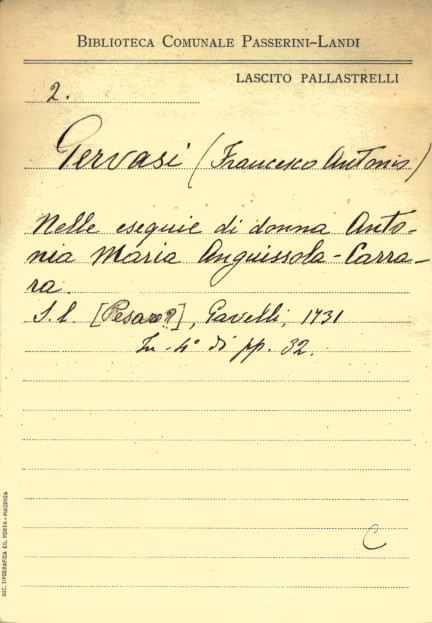 BIBLIOTECA COMUNALE PASSERINI-LANDI
LASCITO PALLASTRELLI
2.
Gervasi (Francesco Antonio)
Nelle esequie di donna Anto-
nia Maria Anguissola-Carra-
ra.
S. l. [Pesaro?], Gavelli, 1731
In-4° di pp. 32.
C
SOC. TIPOGRAFICA ED. PORTA - PIACENZA